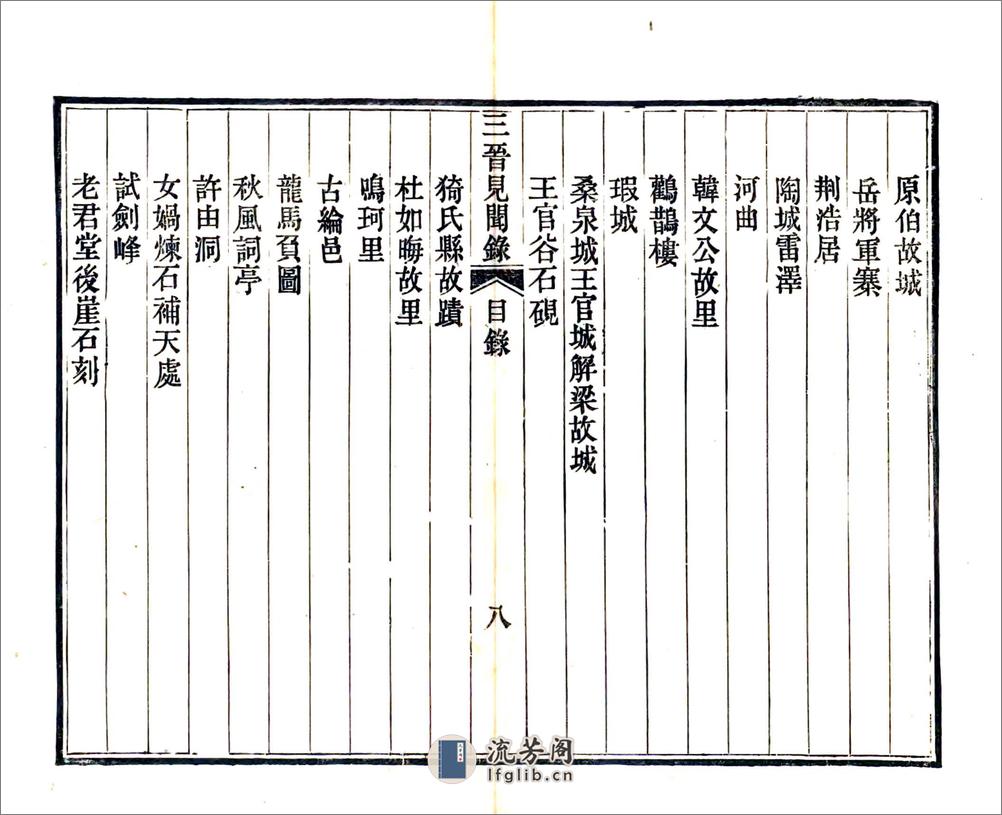 原伯故城
岳將軍寨
荆浩居
陶城雷澤
河曲
韓文公故里
鸛鵲樓
瑕城
桑泉城王官城解梁故城
王官谷石硯
三晉見聞錄
目錄
八
猗氏縣故蹟
杜如晦故里
鳴珂里
古綸邑
龍馬負圖
秋風詞亭
許由洞
女媧煉石補天處
試劍峰
老君堂後崖石刻
流芳阁
lfglib.cn